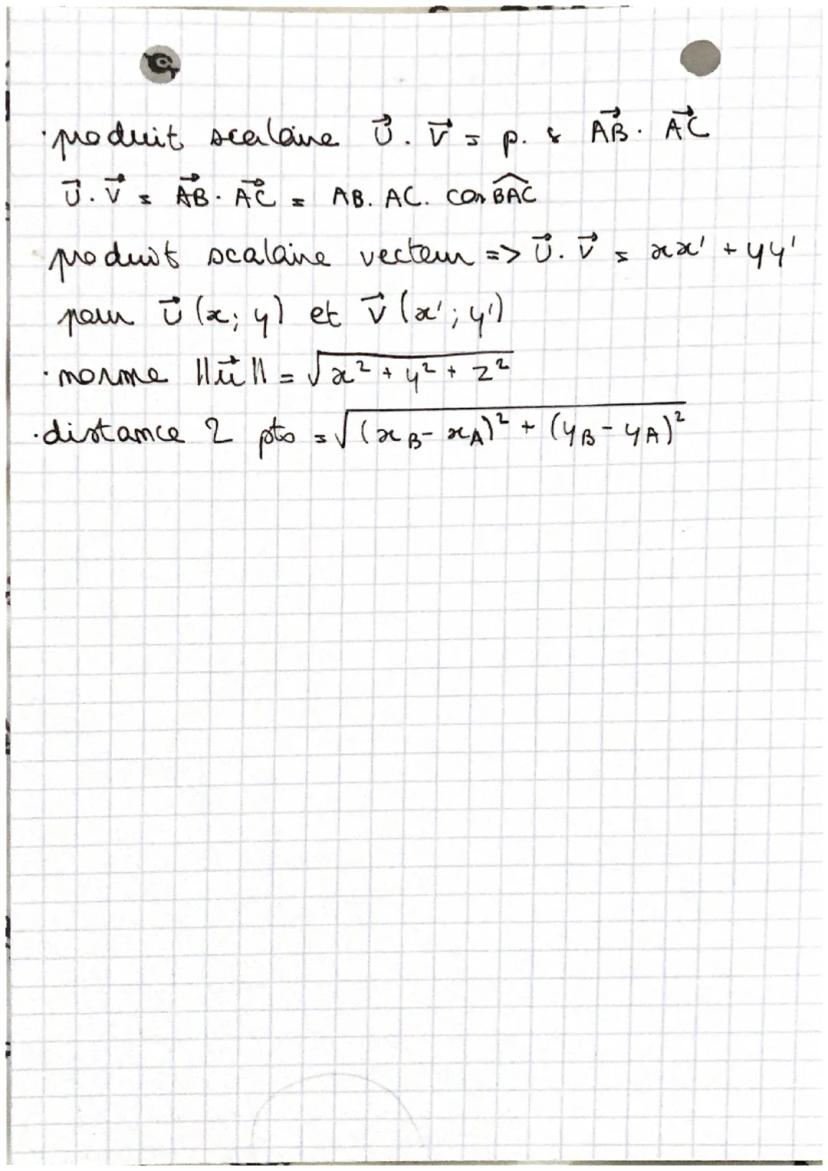 · produit scalaire U⃗ . V⃗ = p. s AB⃗ . AC⃗
U⃗ . V⃗ = AB⃗ . AC⃗ = AB. AC. cos BAC^
produit scalaire vecteur => U⃗ . V⃗ = xx' + yy'
pour U⃗ (x; y) et V⃗ (x'; y')
· norme ||u⃗|| = √(x² + y² + z²)
· distance 2 pts = √((xB - xA)² + (yB - yA)²)